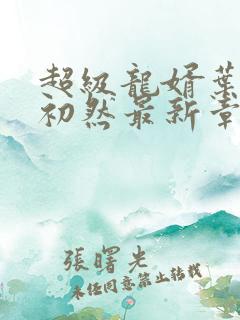 超級龍婿葉
初然最新章
張曙光
未經同意禁止轉載